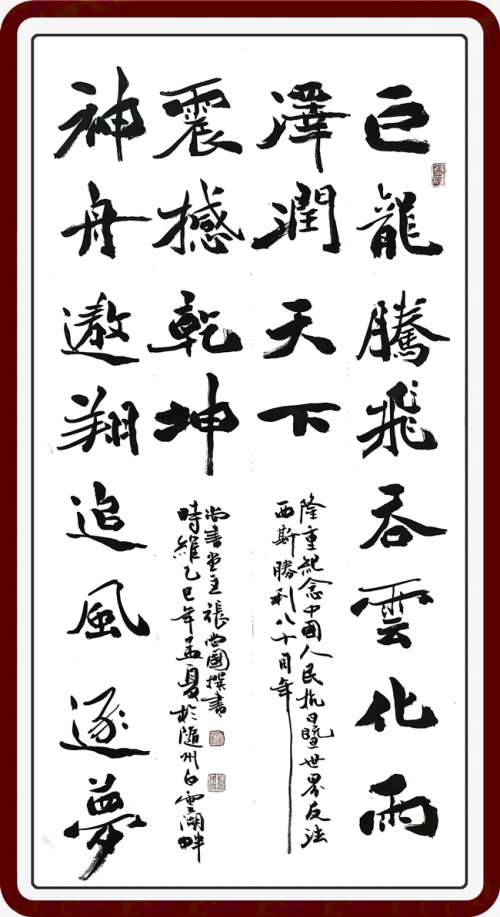 巨龍騰飛吞雲化雨
澤潤天下
隆重紀念中國人民抗日暨世界反法
西斯勝利八十周年
震撼乾坤
尚書堂主張尚國撰書
時維乙巳年孟夏於隨州白雲湖畔
神舟遨翔追風逐夢